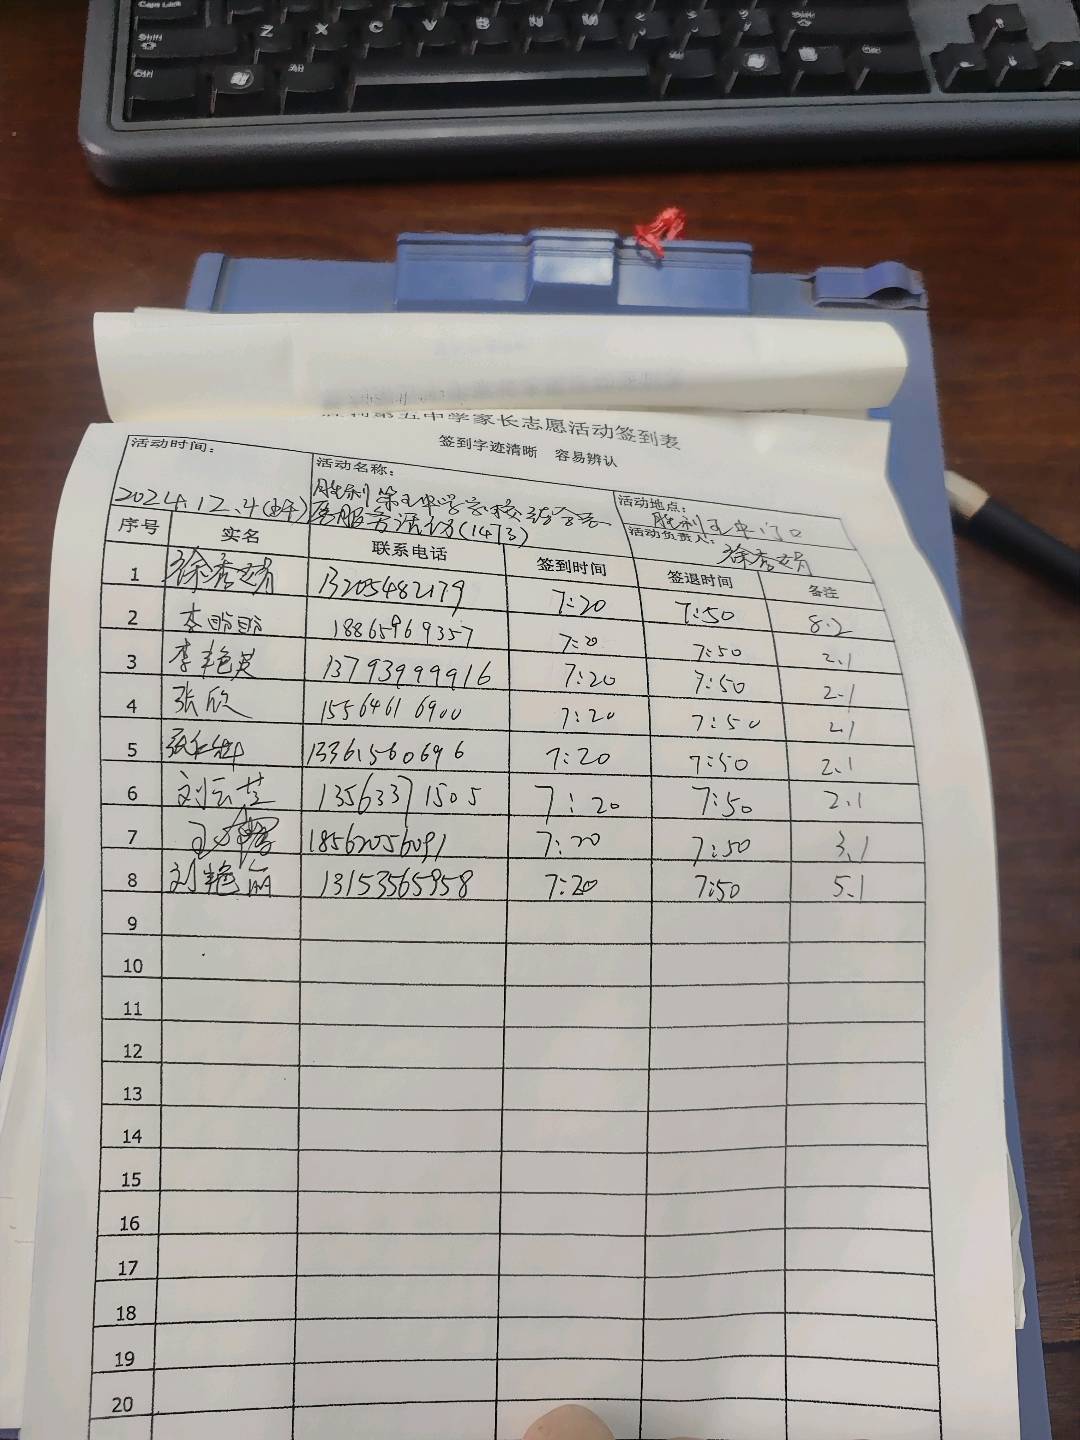 Caps Lock
Shift
Z X C V B N M
Shift
Ctrl
Alt
胜利第五中学家长志愿活动签到表
签到字迹清晰 容易辨认
活动时间：
2024.12.4
活动名称：
胜利第五中学
服务活动(1473)
活动地点：
胜利五中门口
活动负责人：
徐秀娟
序号 实名 联系电话 签到时间 签退时间 备注
1 徐秀娟 13205482179 7:20 7:50 8.2
2 李盼盼 18865969357 7:20 7:50 2.1
3 李艳英 13793999916 7:20 7:50 2.1
4 张欣 15564616900 7:20 7:50 2.1
5 13361560696 7:20 7:50 2.1
6 刘云芝 13563371505 7:20 7:50 2.1
7 18562056091 7:20 7:50 3.1
8 刘艳丽 13153565958 7:20 7:50 5.1
9
10
11
12
13
14
15
16
17
18
19
20